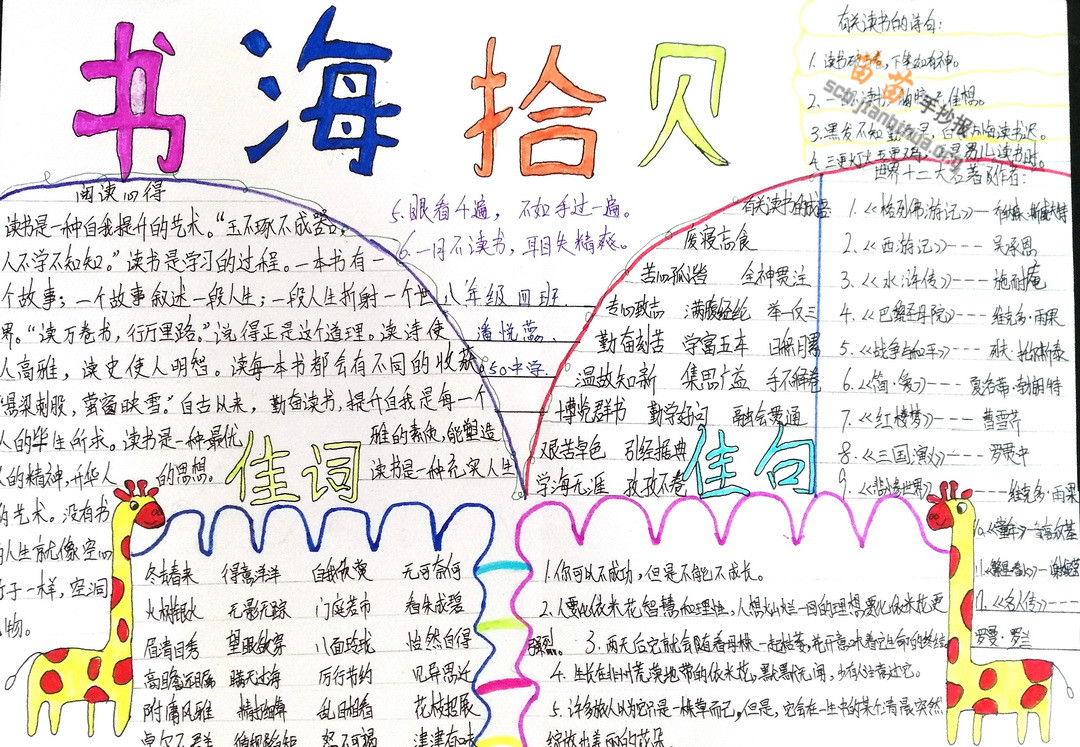 书海拾贝
有关读书的诗句:
1. 读书破万卷,下笔如有神。
2. 一 读书 佳想。
3. 黑发不知勤 早,白 方悔读书迟。
4. 三更灯火五更 男儿读书时。
5. 眼看千遍,不如手过一遍。
6. 一日不读书,耳目失精爽。
苗苗手抄报
scb.jianbihua.org
阅读心得
读书是一种自我提升的艺术。“玉不琢不成器,
人不学不知知。”读书是学习的过程。一本书有一
个故事;一个故事叙述一段人生;一段人生折射一个世
界。“读万卷书,行万里路。”说得正是这个道理。读诗使
人高雅,读史使人明智。读每一本书都会有不同的收获
“悬梁刺股,萤窗映雪。”自古以来,勤奋读书,提升自我是每一个
人的毕生所求。读书是一种最优雅的素质,能塑造
人的精神,升华人的思想。读书是一种充实人生
的艺术。没有书
的人生就像空心
竹子一样,空洞
无物。
八年级四班
潘悦蕊
50中学
有关读书的成语
废寝忘食
苦心孤诣 全神贯注
专心致志 满腹经纶 举一反三
勤奋刻苦 学富五车
温故知新 集思广益 手不释卷
博览群书 勤学好问 融会贯通
艰苦卓色 引经据典
学海无涯 孜孜不倦
世界十二大名著及作者:
1.《格列佛游记》-
2.《西游记》--- 吴承恩
3.《水浒传》---- 施耐庵
4.《巴黎圣母院》---- 维克多·雨果
5.《战争与和平》----
6.《简·爱》---- 夏洛蒂·勃朗特
7.《红楼梦》---- 曹雪芹
8.《三国演义》---- 罗贯中
9.《悲惨世界》------维克多·雨果
10.《童年》-- 高尔基
11.
12.《名人传》----
罗曼·罗兰
佳词
冬去春来 得意洋洋 自我欣赏 无可奈何
火树银火 无影无踪 门庭若市 看朱成碧
眉清目秀 望眼欲穿 八面玲珑 怡然自得
高瞻远瞩 瞒天过海 厉行节约 见异思迁
附庸风雅 精打细算 乱日相看 花枝招展
卓尔不群 俯视 怒不可遏 津津有味
佳句
1. 你可以不成功,但是不能不成长。
2. 人要比依米花智慧和理性,人想灿烂一回的理想要比依米花更
3. 两天后它就会随着母株一走枯萎,并示意味着它生命的终结
4. 生长在非州荒漠地带的依米花,默默无闻,少有人注意过它。
5. 许多旅人以为它只是一株草而已,但是,它会在一生中的某个清晨突然
绽放出美丽的花朵。